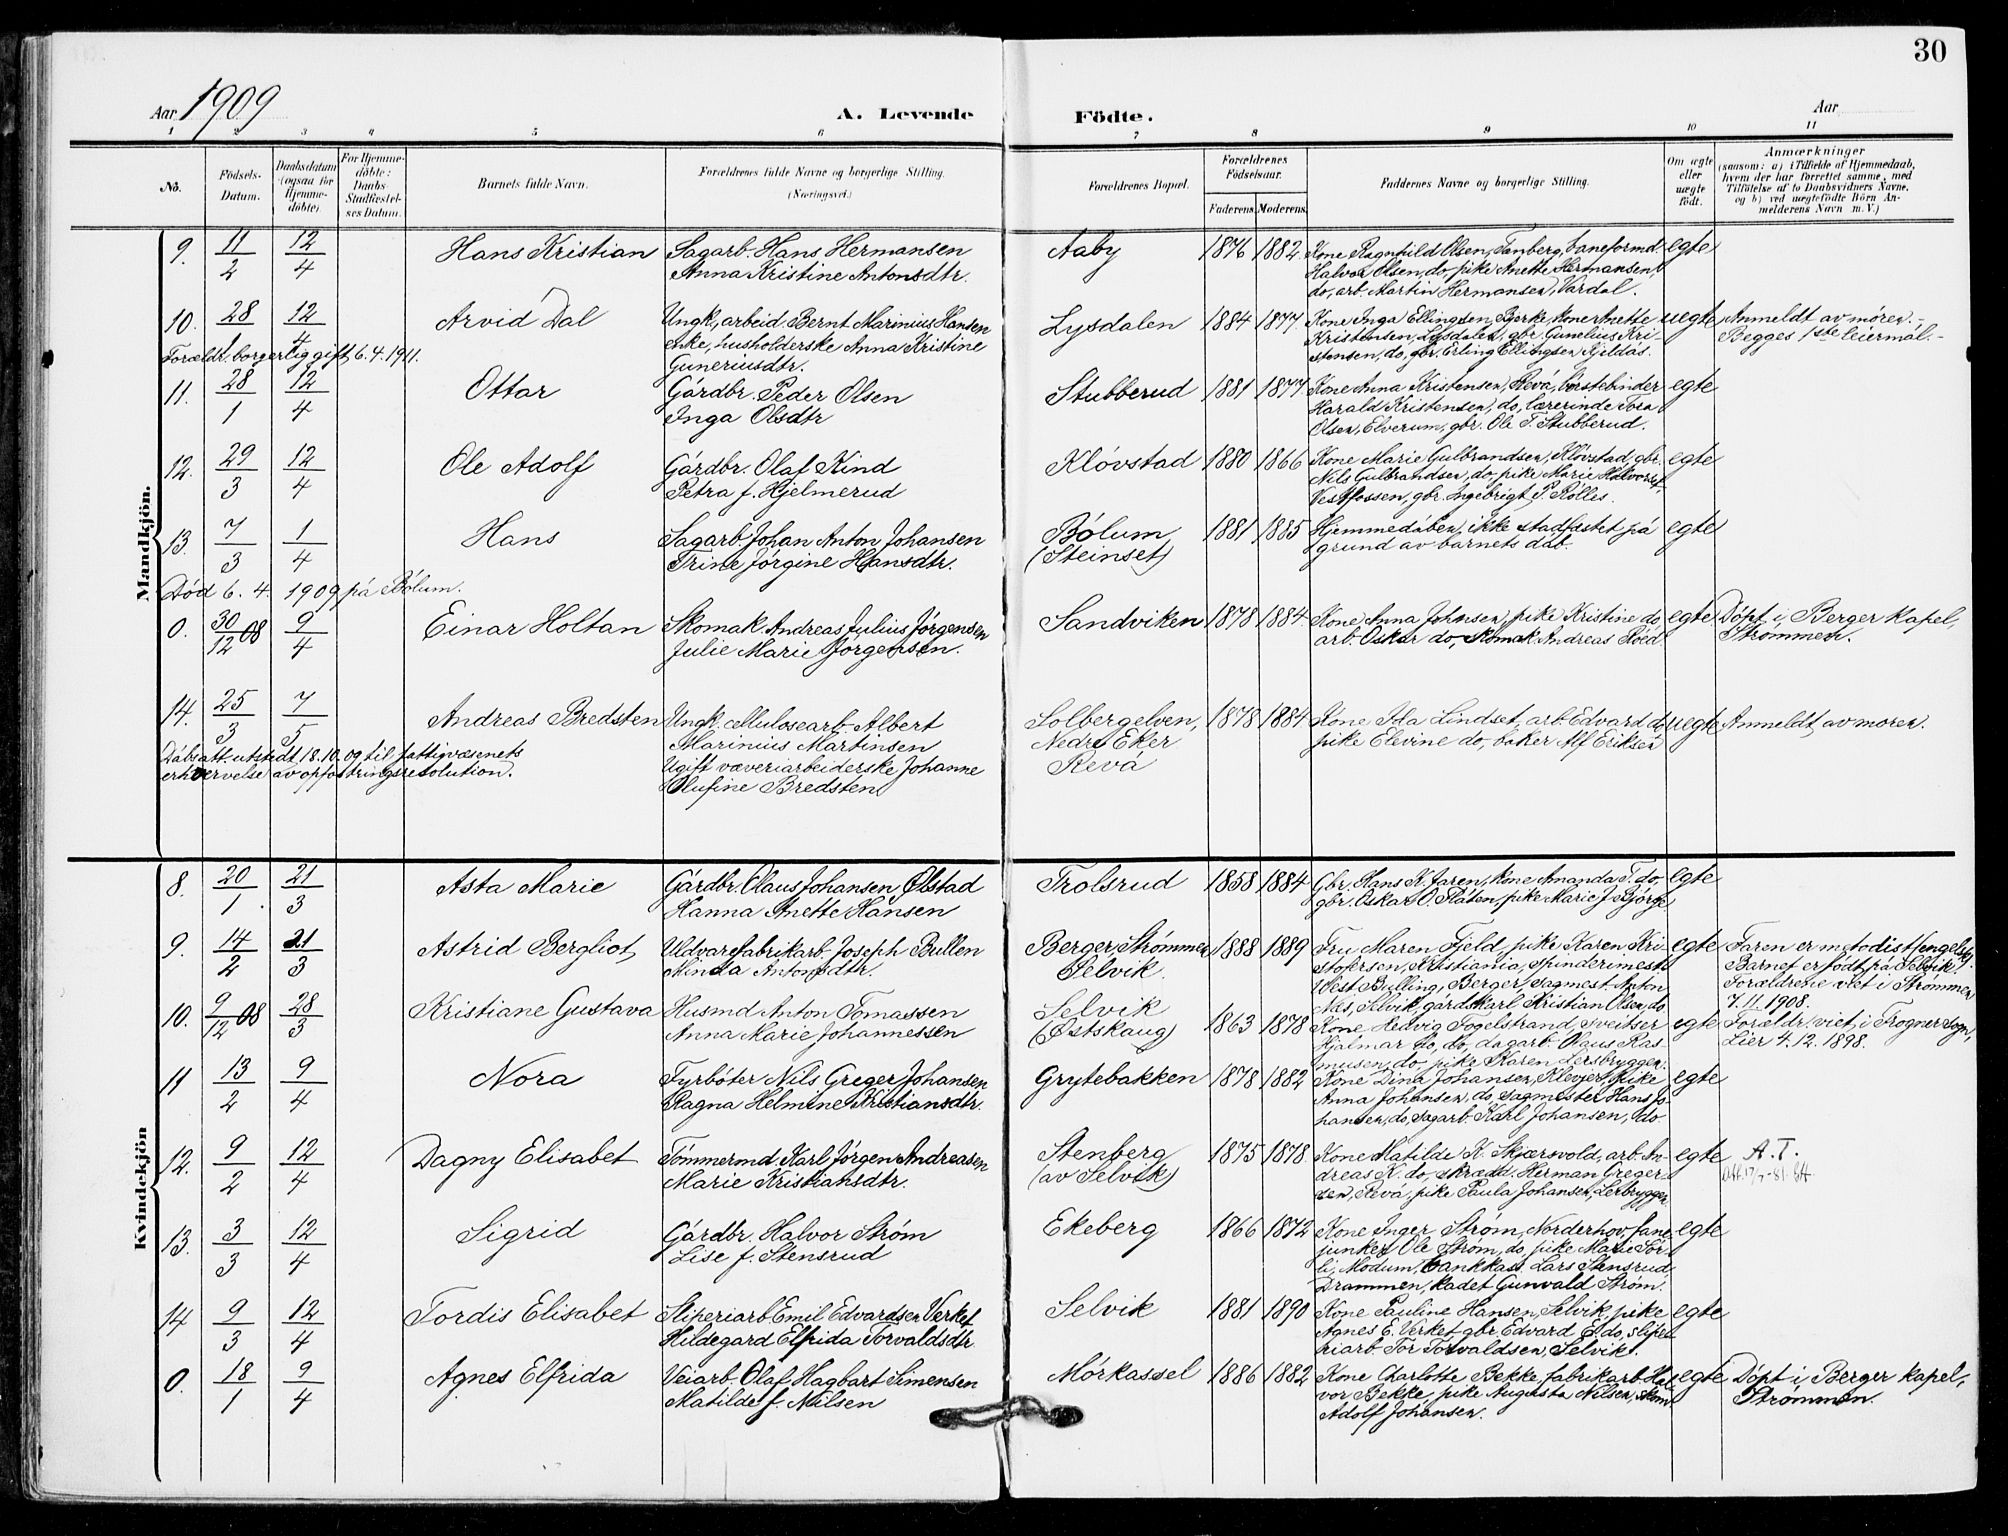 30
Aar 1909 A. Levende Födte. Aar
1 2 3 4 5 6 7 8 9 10 11
No. Födsels-Datum. Daabsdatum (ogsaa for Hjemme-döbte). For Hjemme-döbte: Daabs-Stadfæstel-ses Datum. Barnets fulde Navn. Forældrenes fulde Navne og borgerlige Stilling. (Næringsvei.) Forældrenes Bopæl. Forældrenes Födselsaar. Faderens Moderens. Faddernes Navne og borgerlige Stilling. Om ægte eller uægte födt. Anmærkninger (saasom: a) i Tilfælde af Hjemmedaab, hvem der har forrettet samme, med Tilföielse af to Daabsvidners Navne, og b) ved uægtefödte Börn An-melderens Navn m. V.)
Mandkjön.
9. 11/2 12/4 Hans Kristian Sagarb. Hans Hermansen Aaby 1876 1882 Kone Ragnhild Olsen, Tanberg, baneformd. egte
Anna Kristine Antonsdtr. Halvor Olsen, do, pike Anette Hermansen,
do, arb. Martin Hermansen, Vardal.
10. 28/1 12/4 Arvid Dal Ungk, arbeid. Bernt Marinius Hansen Lysdalen 1884 1877 Kone Inga Ellingsen, Bjerke, kone Anette uegte Anmeldt av moren.-
enke, husholderske Anna Kristine Kristensen, Lysdalen, gbr. Gunelius Kri- Begges 1ste leiermål.-
Foreldr. borgerlig gift 6.4.1911. Guneriusdtr. stensen, do, gbr. Erling Ellingsen Kjeldås.
11. 28/1 12/4 Ottar Gårdbr. Peder Olsen Stubberud 1881 1877 Kone Anna Kristensen, Revå, börstebinder egte
Inga Olsdtr Harald Kristensen, do, lærerinde Tora
Olsen, Elverum, gbr. Ole T. Stubberud.
12. 29/3 12/4 Ole Adolf Gårdbr. Olaf Kind Klövstad 1880 1866 Kone Marie Gulbrandsen, Klövstad, gbr. egte
Petra f. Hjelmerud Nils Gulbrandsen, do, pike Marie Halvors.,
Vestfossen, gbr. Ingebrigt P. Rolles.
13. 7/3 1/4 Hans Sagarb. Johan Anton Johansen Bölum 1881 1885 Hjemmedåben ikke stadfæstet på egte
Trine Jörgine Hansdtr. (Steinset) grund av barnets död.
Död 6. 4. 1909 på Bölum.
0. 30/12 08 9/4 Einar Holtan Skomak. Andreas Julius Jörgensen Sandviken 1878 1884 Kone Anna Johnsen, pike Kristine do egte Döpt i Berger kapel,
Julie Marie Jörgensen. arb. Oskar do, Skomak. Andreas Röed Strømmen.
14. 25/3 7/5 Andreas Bredsten Ungk. cellulosearb. Albert Solbergelven, 1878 1884 Kone Ida Lindset, arb Edvard do uegte Anmeldt av moren.
Marinius Martinsen Nedre Eker pike Elevine do, baker Alf Eriksen
Dåbsatt. utstedt 18.10. og til fattigvæsenets Ugift væveriarbeiderske Johanne Revå
erhvervelse av opfostringsresolution. Olufine Bredsten
Kvindekjön
8. 20/1 21/3 Asta Marie Gårdbr. Olaus Johansen Ølstad Trolsrud 1858 1884 Gbr. Hans K. Jaren, kone Amanda T. do, egte
Hanna Anette Hansen gbr. Oskar O. Flåten, pike Marie J Bjørge
9. 14/2 21/3 Astrid Bergliot Uldvarefabrikarb. Joseph Bullen Berger, Strømmen 1888 1889 Fru Maren Fjeld, pike Karen Kri- egte Faren er metodist (engelsk).
Minda Antonsdtr. Selvik. stofersen, Kristiania, spinderimest. Barnet er født på Selvik.
Vest Bulling, Berger, sagmest. Anton Foreldrene viet i Strømmen
Næs, Selvik, gårdskarl Kristian Olsen, do. 7.11.1908.
10. 9/12 08 28/3 Kristiane Gustava Husmd. Anton Tomassen Selvik 1863 1878 Kone Hedvig Fogelstrand, sveitser egte Forældr. viet i Frogner sogn,
Anna Marie Johannessen (Østskaug) Hjalmar do, do, dagarb. Olaus Ras- Lier 4.12.1898.
musen, do, pike Karen Lersbryggen.
11 13/2 9/4 Nora Fyrböter Nils Greger Johansen Grytebakken 1878 1882 Kone Dina Johansen, Klevjer, pike egte
Ragna Helmine Kristiansdtr. Anna Johansen, do, sagmester Hans Jo-
hansen, do, sagarb. Karl Johansen, do.
12. 9/2 12/4 Dagny Elisabet Tömmermd. Karl Jörgen Andreasen Stenberg 1875 1878 Kone Matilde K. Skjærsvold, arb. An- egte A.T.
Marie Kristiansdtr. (av Selvik) dreas K. do, skrædd. Herman Greger-
sen, Revå, pike Paula Johansen, Lerbryggen
13. 3/3 12/4 Sigrid Gårdbr. Halvor Strøm Ekeberg 1866 1872 Kone Inger Strøm, Norderhov, fane- egte
Lise f. Stensrud junker Ole Strøm, do, pike Marie Sör-
li, Modum, bankkass. Lars Stensrud
Drammen, kadet Gunvald Strøm.
14 9/3 12/4 Tordis Elisabet Sliperiarb Emil Edvardsen Verket Selvik 1881 1890 Kone Pauline Hansen, Selvik, pike egte
Hildegard Elfrida Torvaldsdtr. Agnes E. Verket, gbr. Edvard E. do, slipe-
riarb. Tor Torvaldsen, Selvik.
0. 18/1 9/4 Agnes Elfrida Veiarb. Olaf Hagbart Simensen Mörkassel 1886 1882 Kone Charlotte Bekke, fabrikarb. Hal- egte Döpt i Berger kapel,
Matilde f. Nilsen vor Bekke, pike Augusta Nilsen, skom. Strømmen.
Adolf Johansen.